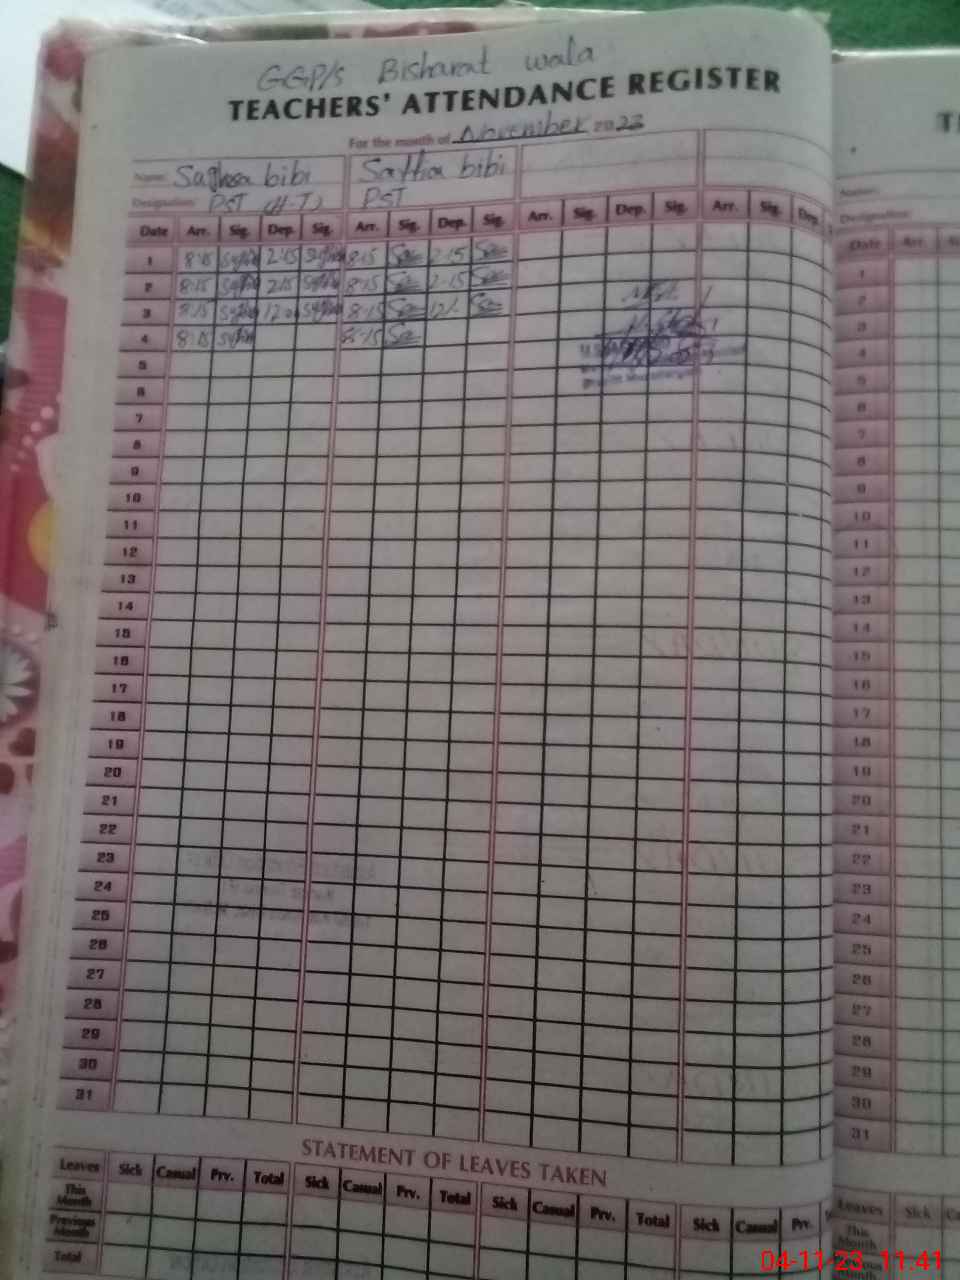 GGP/s Bisharat wala
TEACHERS' ATTENDANCE REGISTER
For the month of November 2023
Name: Sughra bibi Sattia bibi
Designation: PST (H-T) PST
Date Arr. Sig. Dep. Sig. Arr. Sig. Dep. Sig. Arr. Sig. Dep. Sig. Arr. Sig. Dep.
1 8:15 2:15 8:15 2:15
2 8:15 2:15 8:15 2:15
3 8:15 8:15
4 8:15 8:15
5
6
7
8
9
10
11
12
13
14
15
16
17
18
19
20
21
22
23
24
25
26
27
28
29
30
31
STATEMENT OF LEAVES TAKEN
Leaves Sick Casual Prv. Total Sick Casual Prv. Total Sick Casual Prv. Total Sick Casual Prv.
This Month
Previous Month
Total
Date Arr.
1
2
3
4
5
6
7
8
9
10
11
12
13
14
15
16
17
18
19
20
21
22
23
24
25
26
27
28
29
30
31
Leaves Sick
This Month
04-11-23 11:41